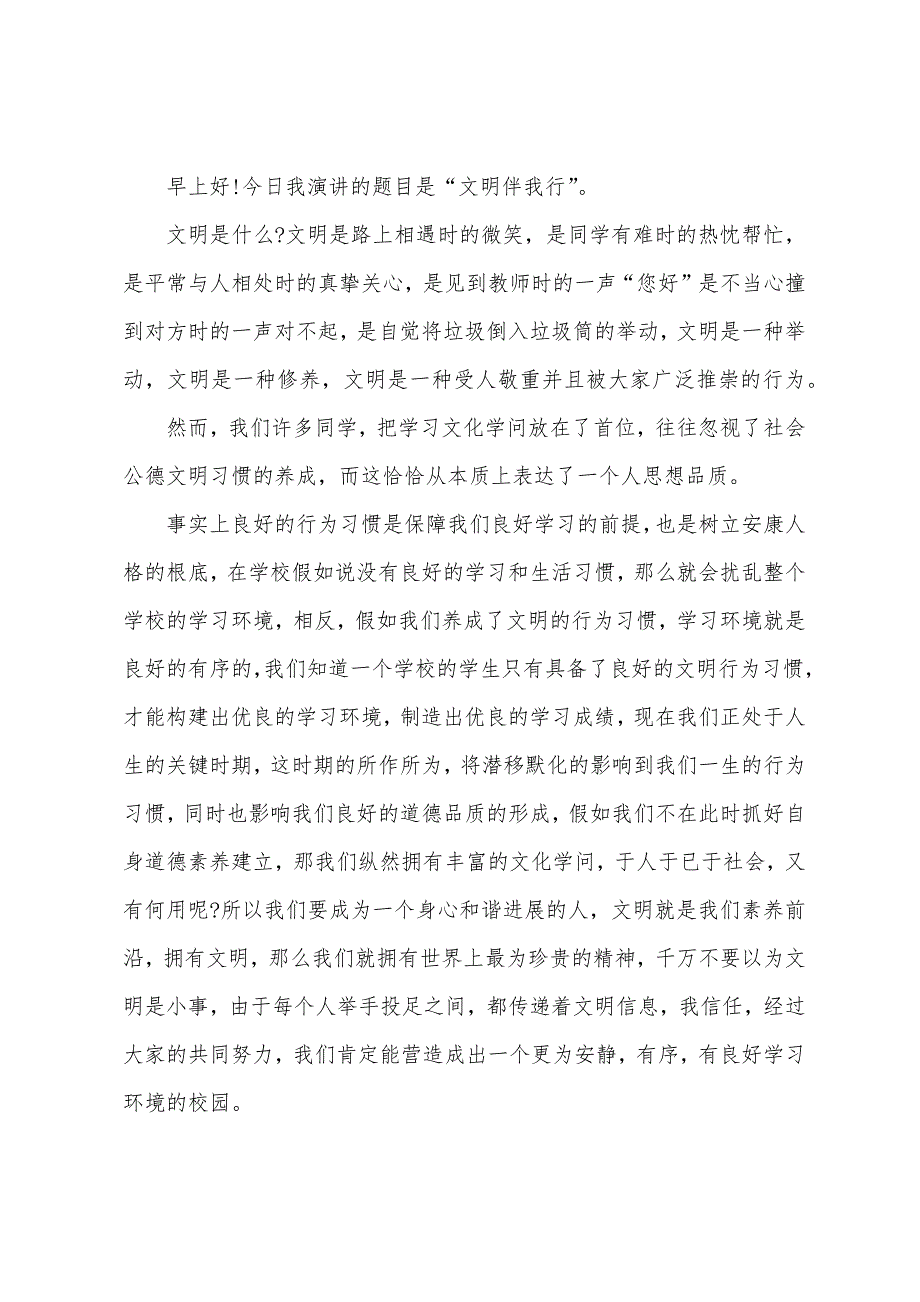 早上好!今日我演讲的题目是“文明伴我行”。
文明是什么?文明是路上相遇时的微笑，是同学有难时的热忱帮忙，
是平常与人相处时的真挚关心，是见到教师时的一声“您好”是不当心撞
到对方时的一声对不起，是自觉将垃圾倒入垃圾筒的举动，文明是一种举
动，文明是一种修养，文明是一种受人敬重并且被大家广泛推崇的行为。
然而，我们许多同学，把学习文化学问放在了首位，往往忽视了社会
公德文明习惯的养成，而这恰恰从本质上表达了一个人思想品质。
事实上良好的行为习惯是保障我们良好学习的前提，也是树立安康人
格的根底，在学校假如说没有良好的学习和生活习惯，那么就会扰乱整个
学校的学习环境，相反，假如我们养成了文明的行为习惯，学习环境就是
良好的有序的，我们知道一个学校的学生只有具备了良好的文明行为习惯，
才能构建出优良的学习环境，制造出优良的学习成绩，现在我们正处于人
生的关键时期，这时期的所作所为，将潜移默化的影响到我们一生的行为
习惯，同时也影响我们良好的道德品质的形成，假如我们不在此时抓好自
身道德素养建立，那我们纵然拥有丰富的文化学问，于人于已于社会，又
有何用呢?所以我们要成为一个身心和谐进展的人，文明就是我们素养前
沿，拥有文明，那么我们就拥有世界上最为珍贵的精神，千万不要以为文
明是小事，由于每个人举手投足之间，都传递着文明信息，我信任，经过
大家的共同努力，我们肯定能营造成出一个更为安静，有序，有良好学习
环境的校园。